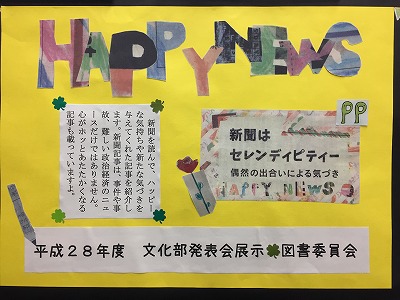 HAPPY NEWS
新聞を読んで、ハッピー
な気持ちや新たな気づきを
与えてくれた記事を紹介し
ます。新聞記事は、事件や事
故、難しい政治経済のニュ
ースだけではありません。
心がホッとあたたかくなる
記事も載っていますよ。
PP
新聞は
セレンディピティー
偶然の出合いによる気づき
HAPPY NEWS
平成28年度 文化部発表会展示 図書委員会